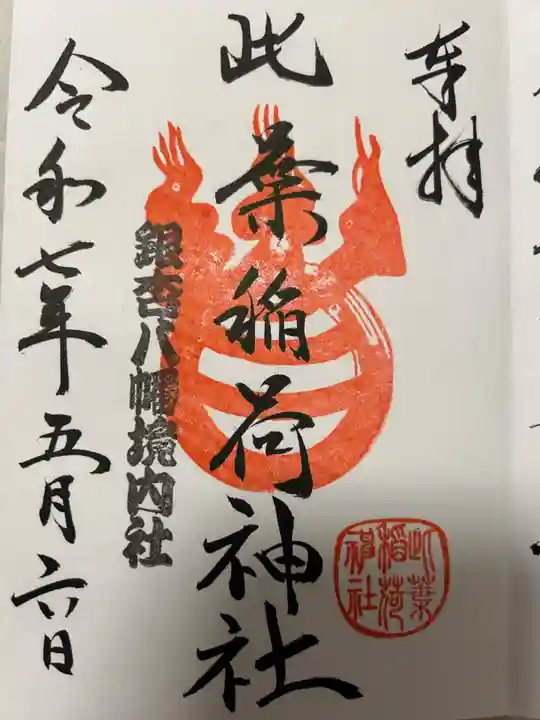 奉拝
此葉稲荷神社
銀杏八幡境内社
令和七年五月六日
此葉
稲荷
神社